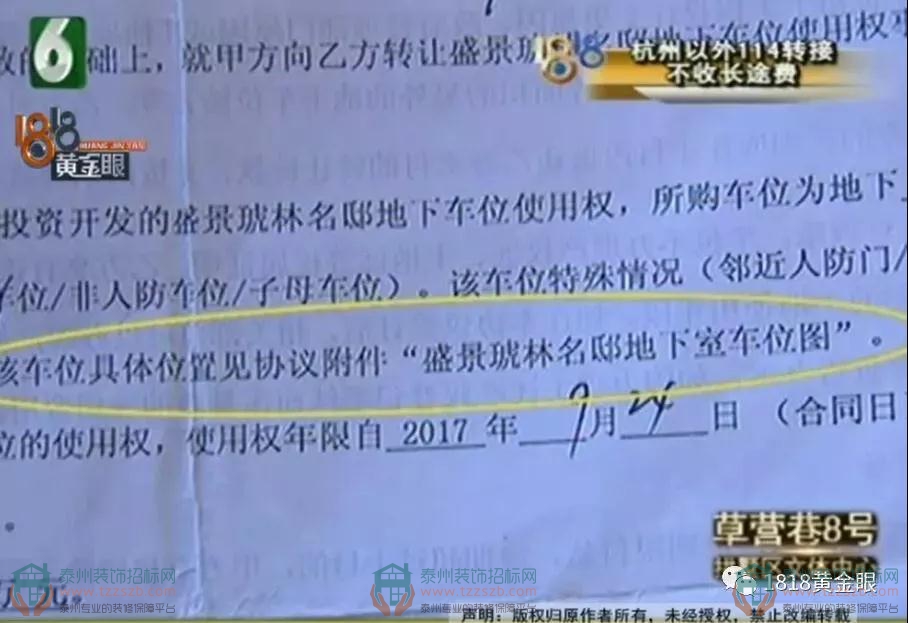 6
础上，就甲方向乙方转让盛景琥
名邸地下车位使用权
1818
杭州以外114转接
不收长途费
1818
HUANG JIN YAN
黄金眼
投资开发的盛景琥林名邸地下车位使用权，所购车位为地下
位/非人防车位/子母车位）。该车位特殊情况（邻近人防门/
该车位具体位置见协议附件“盛景琥林名邸地下室车位图”。
位的使用权，使用权年限自 2017 年 9 月 24 日 （合同日
。
草营巷8号
1818黄金眼
万元
泰州装饰招标网
www.tzzszb.com
泰州专业的装修保障平台
泰州装饰招标网
www.tzzszb.com
泰州专业的装修保障平台
泰州装饰招标网
www.tzzszb.com
泰州专业的装修保障平台
声明：版权归原作者所有，未经授权，禁止改编转载